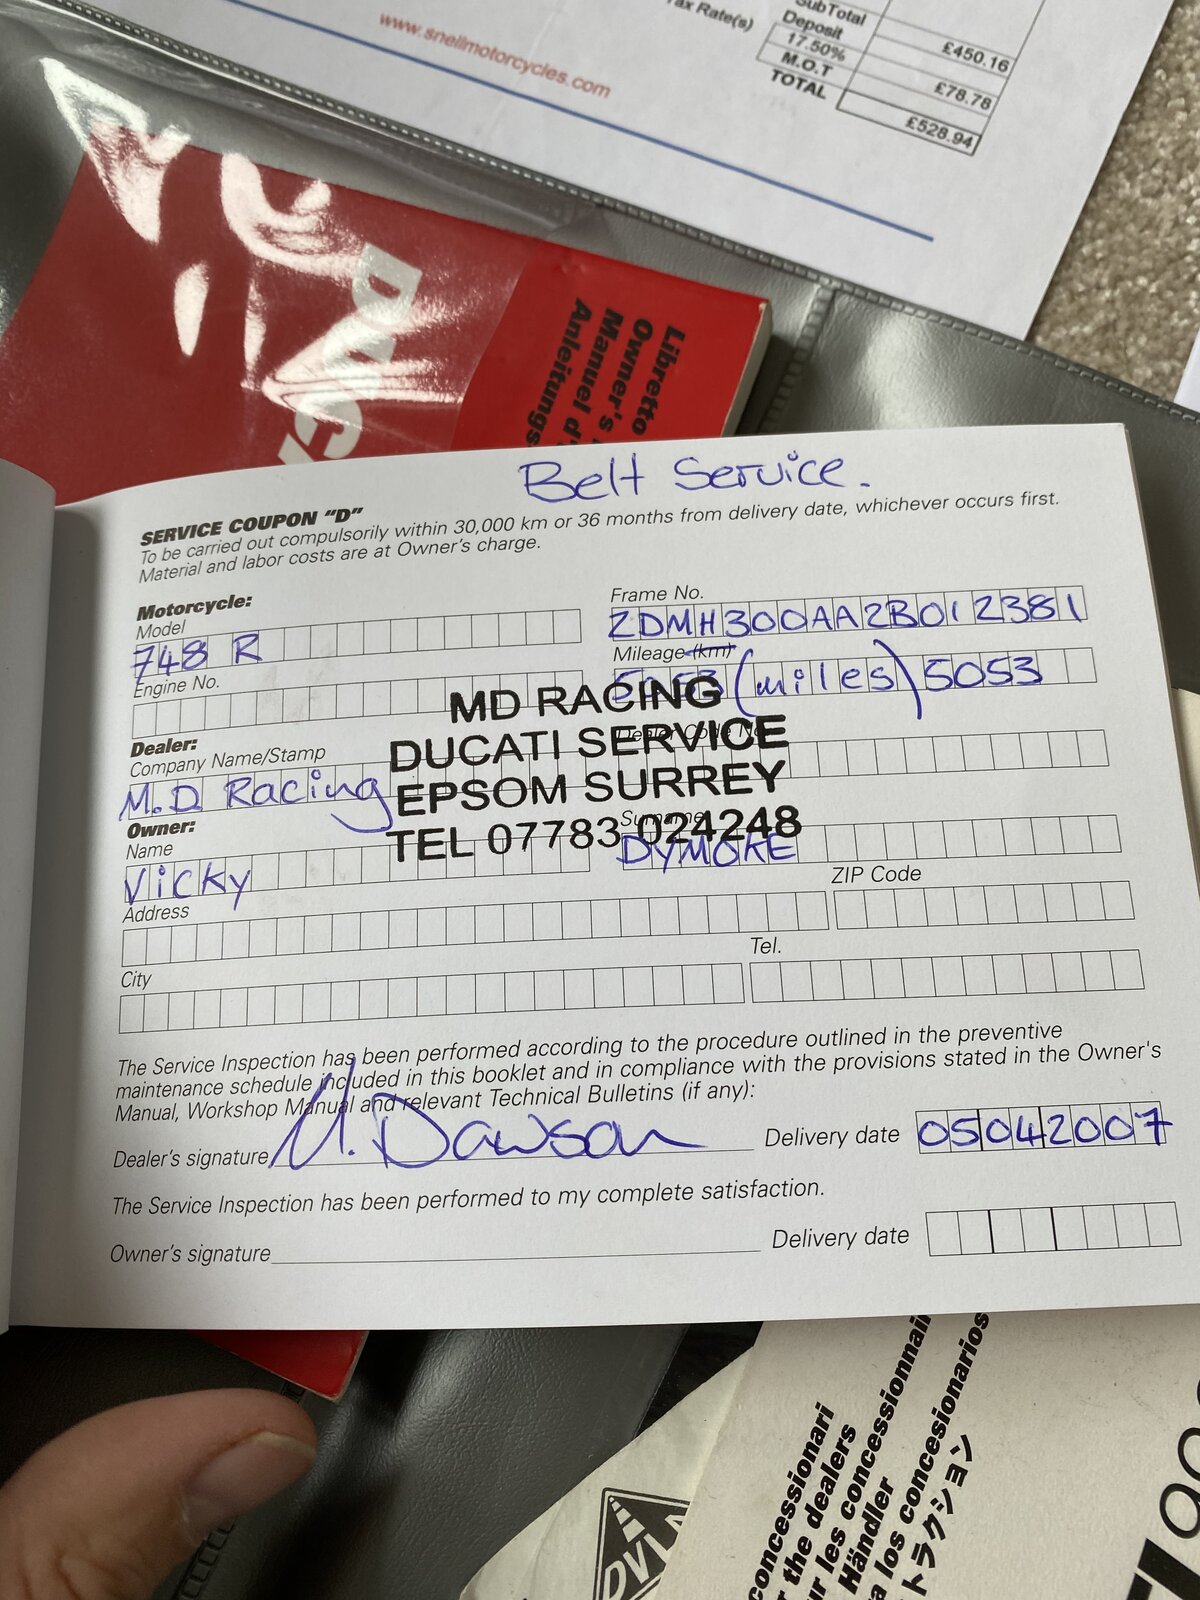 www.snellmotorcycles.com
Tax Rate(s)
SubTotal £450.16
Deposit
17.50% £78.78
M.O.T
TOTAL £528.94
Libretto
Owner's
Manuel d'
Anleitungs
Belt Service.
SERVICE COUPON "D"
To be carried out compulsorily within 30,000 km or 36 months from delivery date, whichever occurs first.
Material and labor costs are at Owner's charge.
Motorcycle:
Model
748 R
Frame No.
ZDMH300AA2B012381
Engine No.
Mileage (km)
5053 (miles) 5053
Dealer:
Company Name/Stamp
M.D. Racing
Dealer Code No.
MD RACING
DUCATI SERVICE
EPSOM SURREY
TEL 07783 024248
Owner:
Name
Vicky
Surname
DYMOKE
Address
ZIP Code
City
Tel.
The Service Inspection has been performed according to the procedure outlined in the preventive
maintenance schedule included in this booklet and in compliance with the provisions stated in the Owner's
Manual, Workshop Manual and relevant Technical Bulletins (if any):
Dealer's signature M. Dawson
Delivery date 05042007
The Service Inspection has been performed to my complete satisfaction.
Owner's signature
Delivery date
concessionari
the dealers
les concessionnai
Händler
a los concesionarios
トラクション
DVLA